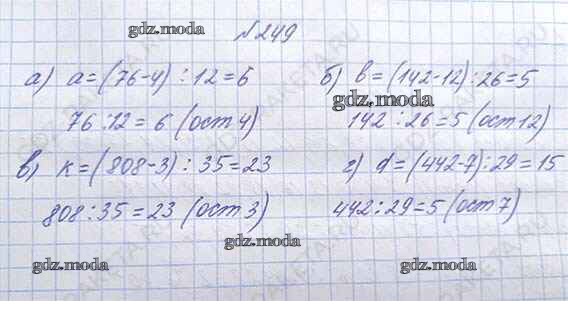 gdz.moda
№249
а) a=(76-4) : 12=6 б) b=(142-12):26=5
gdz.moda
76:12=6 (ост 4) 142:26=5 (ост 12)
в) к=(808-3) : 35=23 г) d=(442-7):29=15
808:35=23 (ост 3) 442:29=5 (ост 7)
gdz.moda
gdz.moda gdz.moda